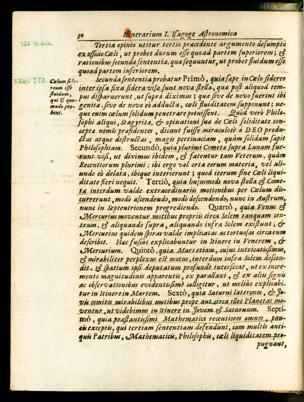 30 Itinerarium I. Isagoge Astronomica
Tertia opinio nititur tertio præcedente argumento desumpto
ex officio Cœli, ut probet durum esse quoad partem superiorem; &
rationibus secunda sententia, quæ sequuntur, ut probet fluidum esse
quoad partem inferiorem.
Secunda sententia probatur Primò, quia sæpe in Cœlo sidereo
inter ipsa fixa sidera visa sunt nova stella, quæ post aliquod tempus disparuerunt,
Cœlum si-
reum esse
fluidum,
qui & quo-
modo pro-
bent.
genita, sive de novo eò adducta, cœli fluiditatem supponunt; ne-
que enim cœlum solidum penetrare potuissent. Quod verò Philo-
sophi aliqui, Stagyritæ, & opinationi suæ de Cœli soliditate con-
cepta nimis præfidentes, dicant fuisse miraculo à DEO produ-
ctas atque destructas, magis pertinaciam, quàm solidam sapit
Philosophiam. Secundò, quia plurimi Cometa supra Lunam fue-
runt visi, ut diximus ibidem, & fatentur tam Veterum, quàm
Recentiorum plurimi: ibi ergo vel orta eorum materia, vel ali-
unde eò delata, ibique interierunt; quod iterum sine Cœli liqui-
ditate fieri nequit. Tertiò, quia hujusmodi nova stella & Come-
ta interdum valde extraordinariis motionibus per Cœlum dis-
currerunt, modò ascendendo, modò descendendo, nunc in Austrum,
nunc in Septentrionem progrediendo. Quartò, quia Venus &
Mercurius moventur motibus propriis circa Solem tanquam cen-
trum, & aliquando supra, aliquando infra Solem existunt; &
Mercurius quidem spiras valde implicatas ac tortuosas circa eum
describit. Hac fusius explicabuntur in Itinere in Venerem, &
Mercurium. Quintò, quia Mars etiam, cujus
& mirabiliter perplexus est motus, interdum infra Solem descen-
dit, & spatium ipsi deputatum profunde intersecat, ut ex incre-
mento magnitudinis apparentis, ex parallaxi, & ex aliis signis
ac observationibus evidentissimè colligitur, ut melius explicabi-
tur in Itinere in Martem. Sextò, quia Saturni laterones, & Jo-
vis comites mirabilibus motibus prope aut circa illos Planetas mo-
ventur, ut videbimus in Itinere in Jovem & Saturnum. Septi-
mò, quia præstantissimi Mathematici recentiores omnes, pau-
cis exceptis, qui tertiam sententiam defendunt, cum multis anti-
quis Patribus, Mathematicis, Philosophis, cœli liquiditatem pro-
pugnant,